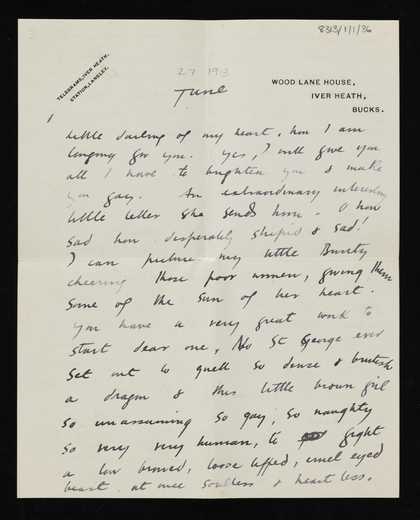 8313/1/1/36
TELEGRAMS, IVER HEATH.
STATION, LANGLEY.
27 1913
June
WOOD LANE HOUSE,
IVER HEATH,
BUCKS.
little darling of my heart, how I am
longing for you. Yes, I will give you
all I have to brighten you & make
you gay. An extraordinary interesting
little letter she sends him. O how
sad how desperately stupid & sad!
I can picture my little Bunty
cheering those poor women, giving them
some of the sun of her heart.
You have a very great work to
start dear one, No St George ever
set out to quell so dense & brutish
a dragon & this little brown girl
so unassuming so gay, so naughty
so very very human, to fight
a low browed, loose lipped, cruel eyed
beast. at once soulless & heartless.